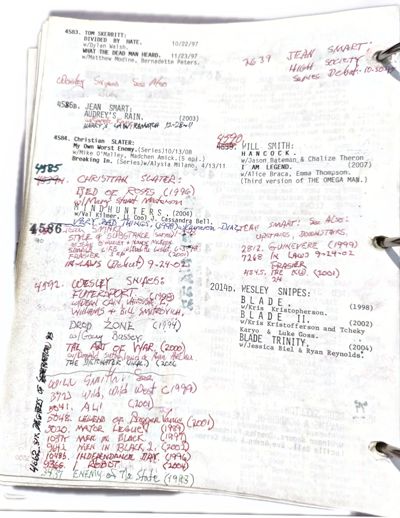 4583. TOM SKERRITT:
DIVIDED BY HATE. 10/22/97
w/Dylan Walsh.
WHAT THE DEAD MAN HEARD. 11/23/97
w/Matthew Modine, Bernadette Peters.
2639 JEAN SMART:
HIGH SOCIETY
Series Debut- 10-30-95
Wesley Snipes See Also
4586b. JEAN SMART:
AUDREY'S RAIN. (2003)
4584. Christian SLATER:
My Own Worst Enemy.(Series)10/13/08
w/Mike O'Malley, Madchen Amick.(S epi.)
Breaking In. (Series)w/Alysia Milano, 4/13/11
4590
WILL SMITH:
HANCOCK.
w/Jason Bateman & Chalize Theron
I AM LEGEND. (2007)
w/Alice Braca, Emma Thompson.
(Third version of THE OMEGA MAN.)
4585
CHRISTIAN SLATER:
BED OF ROSES (1996)
w/Mary Stuart Masterson
MINDHUNTERS. (2004)
w/Val Kilmer, LL Cool J, Cassandra Bell.
VERY BAD THINGS. (1998) w/Cameron Diaz
4586
IN-LAWS (Debut) 9-24-02
JEAN SMART: See Also:
UPSTAIRS, DOWNSTAIRS.
2812. GUINEVERE (1999)
7268 IN LAWS 9-24-02
FRASIER
(2001)
4592. WESLEY SNIPES:
FUTURESPORT (1998)
w/DEAN CAIN, VANESSA
WILLIAMS & BILL SMITROVICH.
DROP ZONE (1994)
w/Gary Bussey
THE ART OF WAR. (2000)
w/Donald Sutherland & Anne Archer
2014b. WESLEY SNIPES:
BLADE. (1998)
w/Kris Kristopherson.
BLADE II. (2002)
w/Kris Kristofferson and Tcheky
Karyo & Luke Goss.
BLADE TRINITY. (2004)
w/Jessica Biel & Ryan Reynolds.
WILL SMITH: See
3723 Wild, Wild West (1999)
ALI (2001)
5048. LEGEND OF BAGGER VANCE (2001)
5020. MAJOR LEAGUE (1989)
MEN IN BLACK. (1997)
9642. MEN IN BLACK 2. (2002)
INDEPENDANCE DAY. (1996)
9366. I ROBOT (2004)
ENEMY of The State (1998)